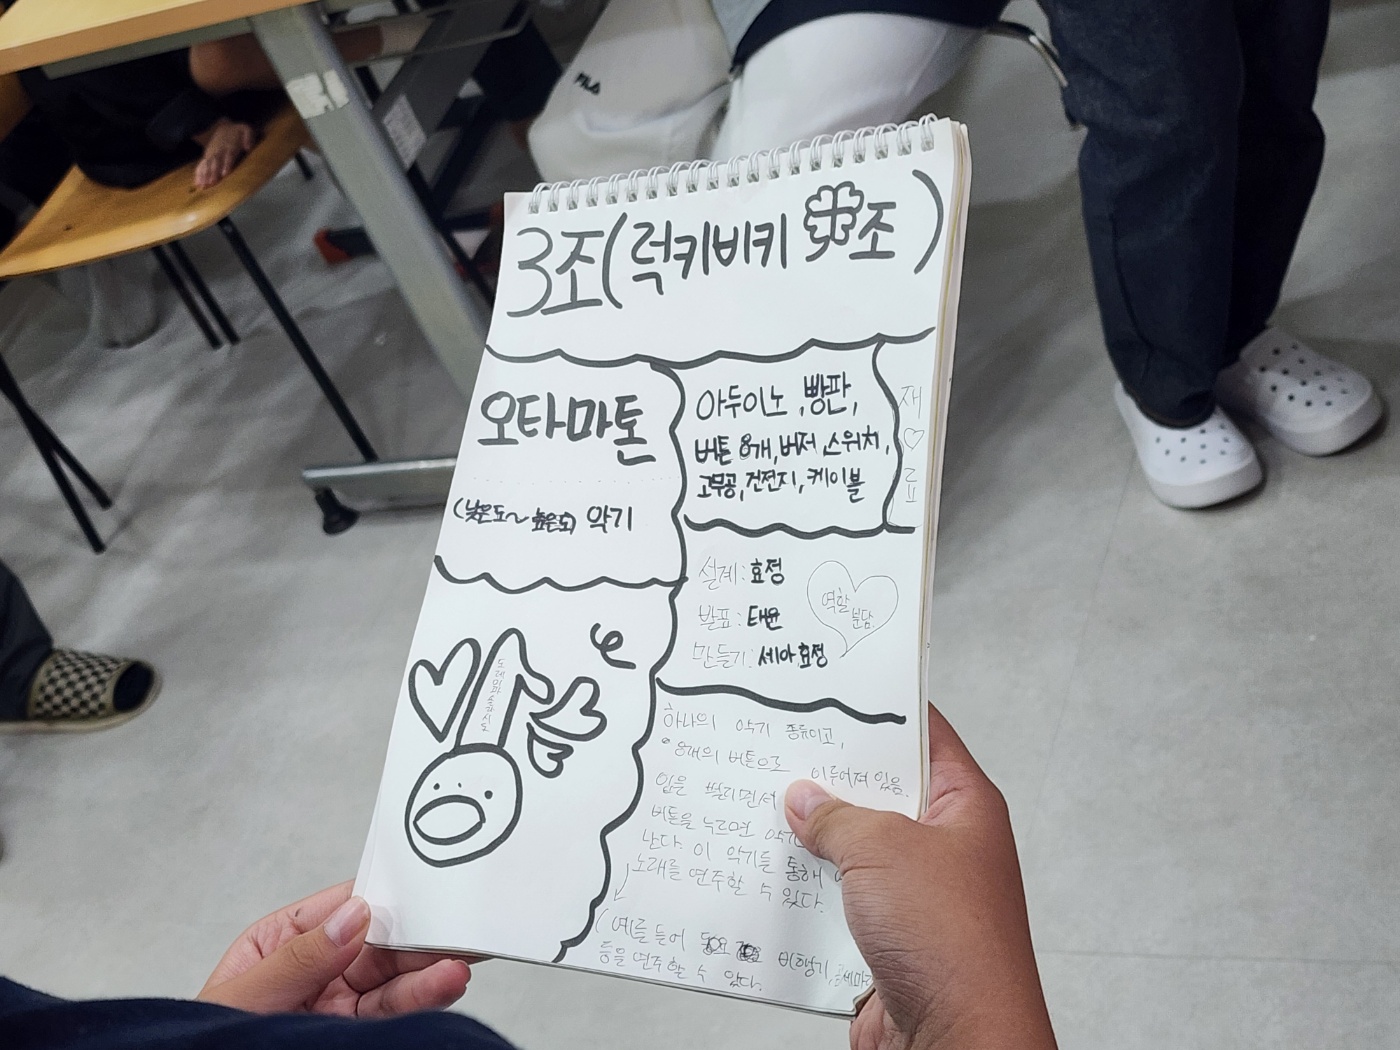 FILA
3조(럭키비키 조)
오타마톤
(낮은도~높은도) 악기
아두이노, 빵판,
버튼 8개, 버저 스위치,
고무공, 건전지, 케이블
재♡료
설계: 효정
발표: 태윤
만들기: 세아 효정
역할
분담
도레미파솔라시도
하나의 악기 종류이고,
8개의 버튼으로 이루어져 있음.
입을 벌리면서
버튼을 누르면
난다. 이 악기를 통해
노래를 연주할 수 있다.
(예를 들어 비행기, 곰세마리
등을 연주할 수 있다.